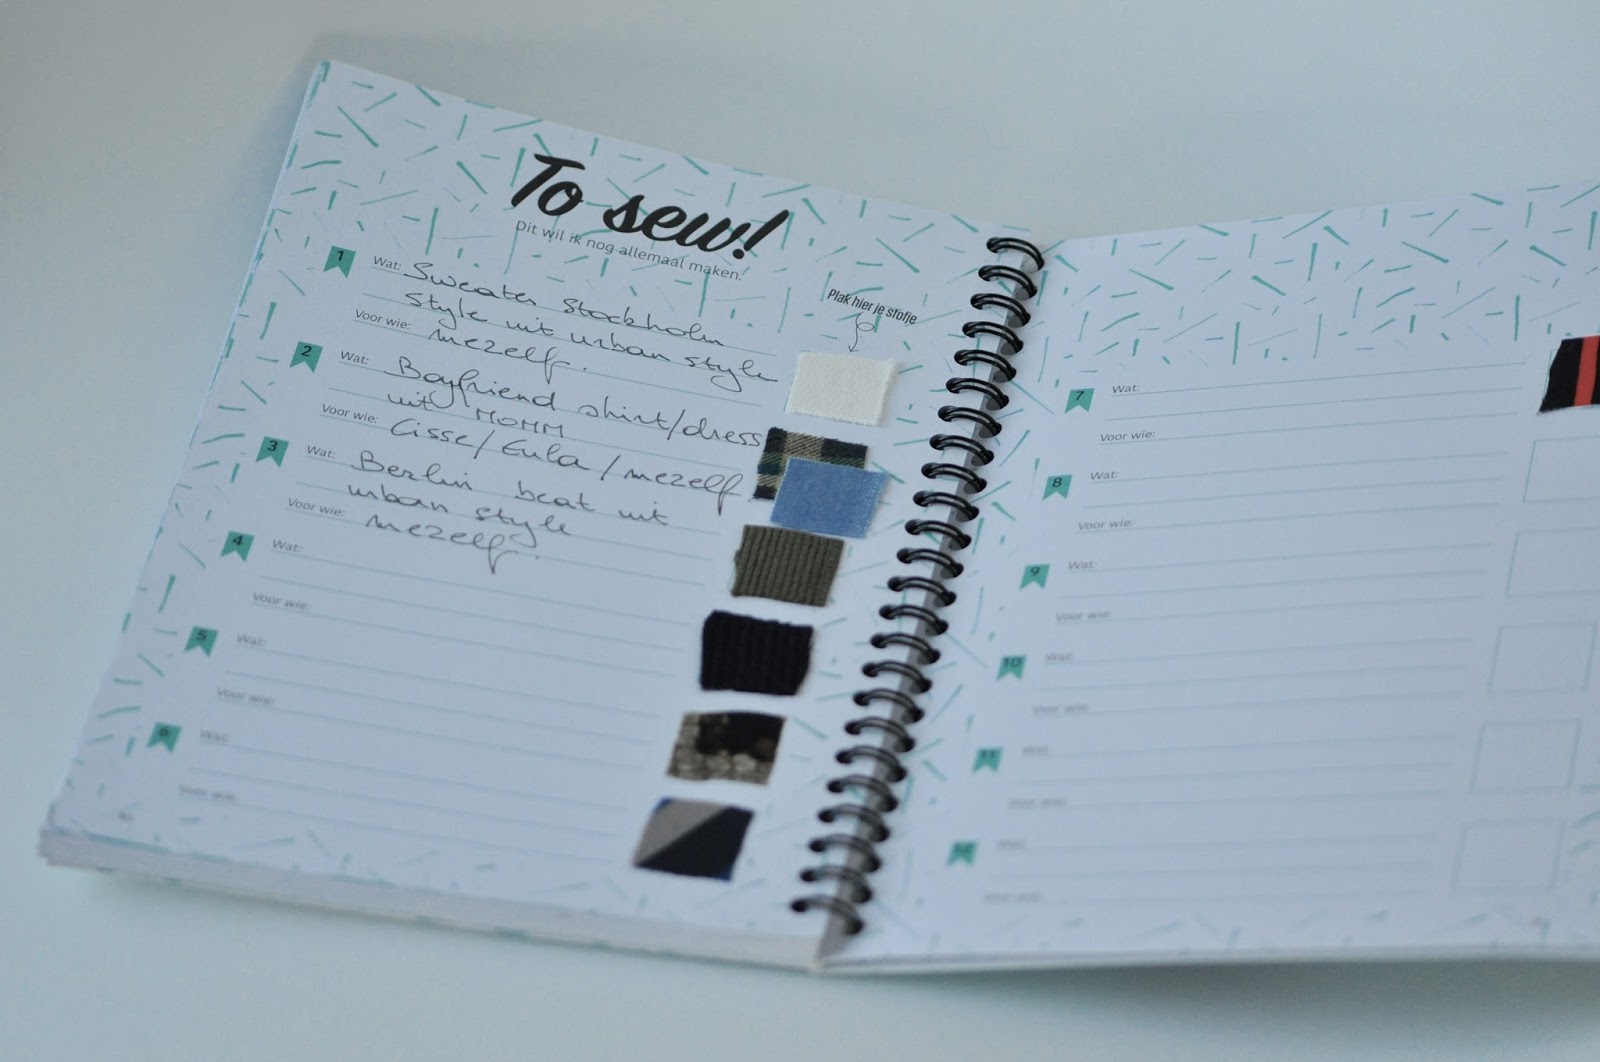 To sew!
Dit wil ik nog allemaal maken.
Plak hier je stofje
1
Wat: Sweater Stockholm
style uit urban style
Voor wie: mezelf.
2
Wat: Boyfriend shirt/dress
uit MOMM
Voor wie: Cisse/Eula/mezelf
3
Wat: Berlin beat uit
urban style
Voor wie: mezelf.
4
Wat:
Voor wie:
5
Wat:
Voor wie:
6
Wat:
Voor wie:
7
Wat:
Voor wie:
8
Wat:
Voor wie:
9
Wat:
Voor wie:
10
Wat:
Voor wie:
11
Wat:
Voor wie:
12
Wat:
Voor wie: